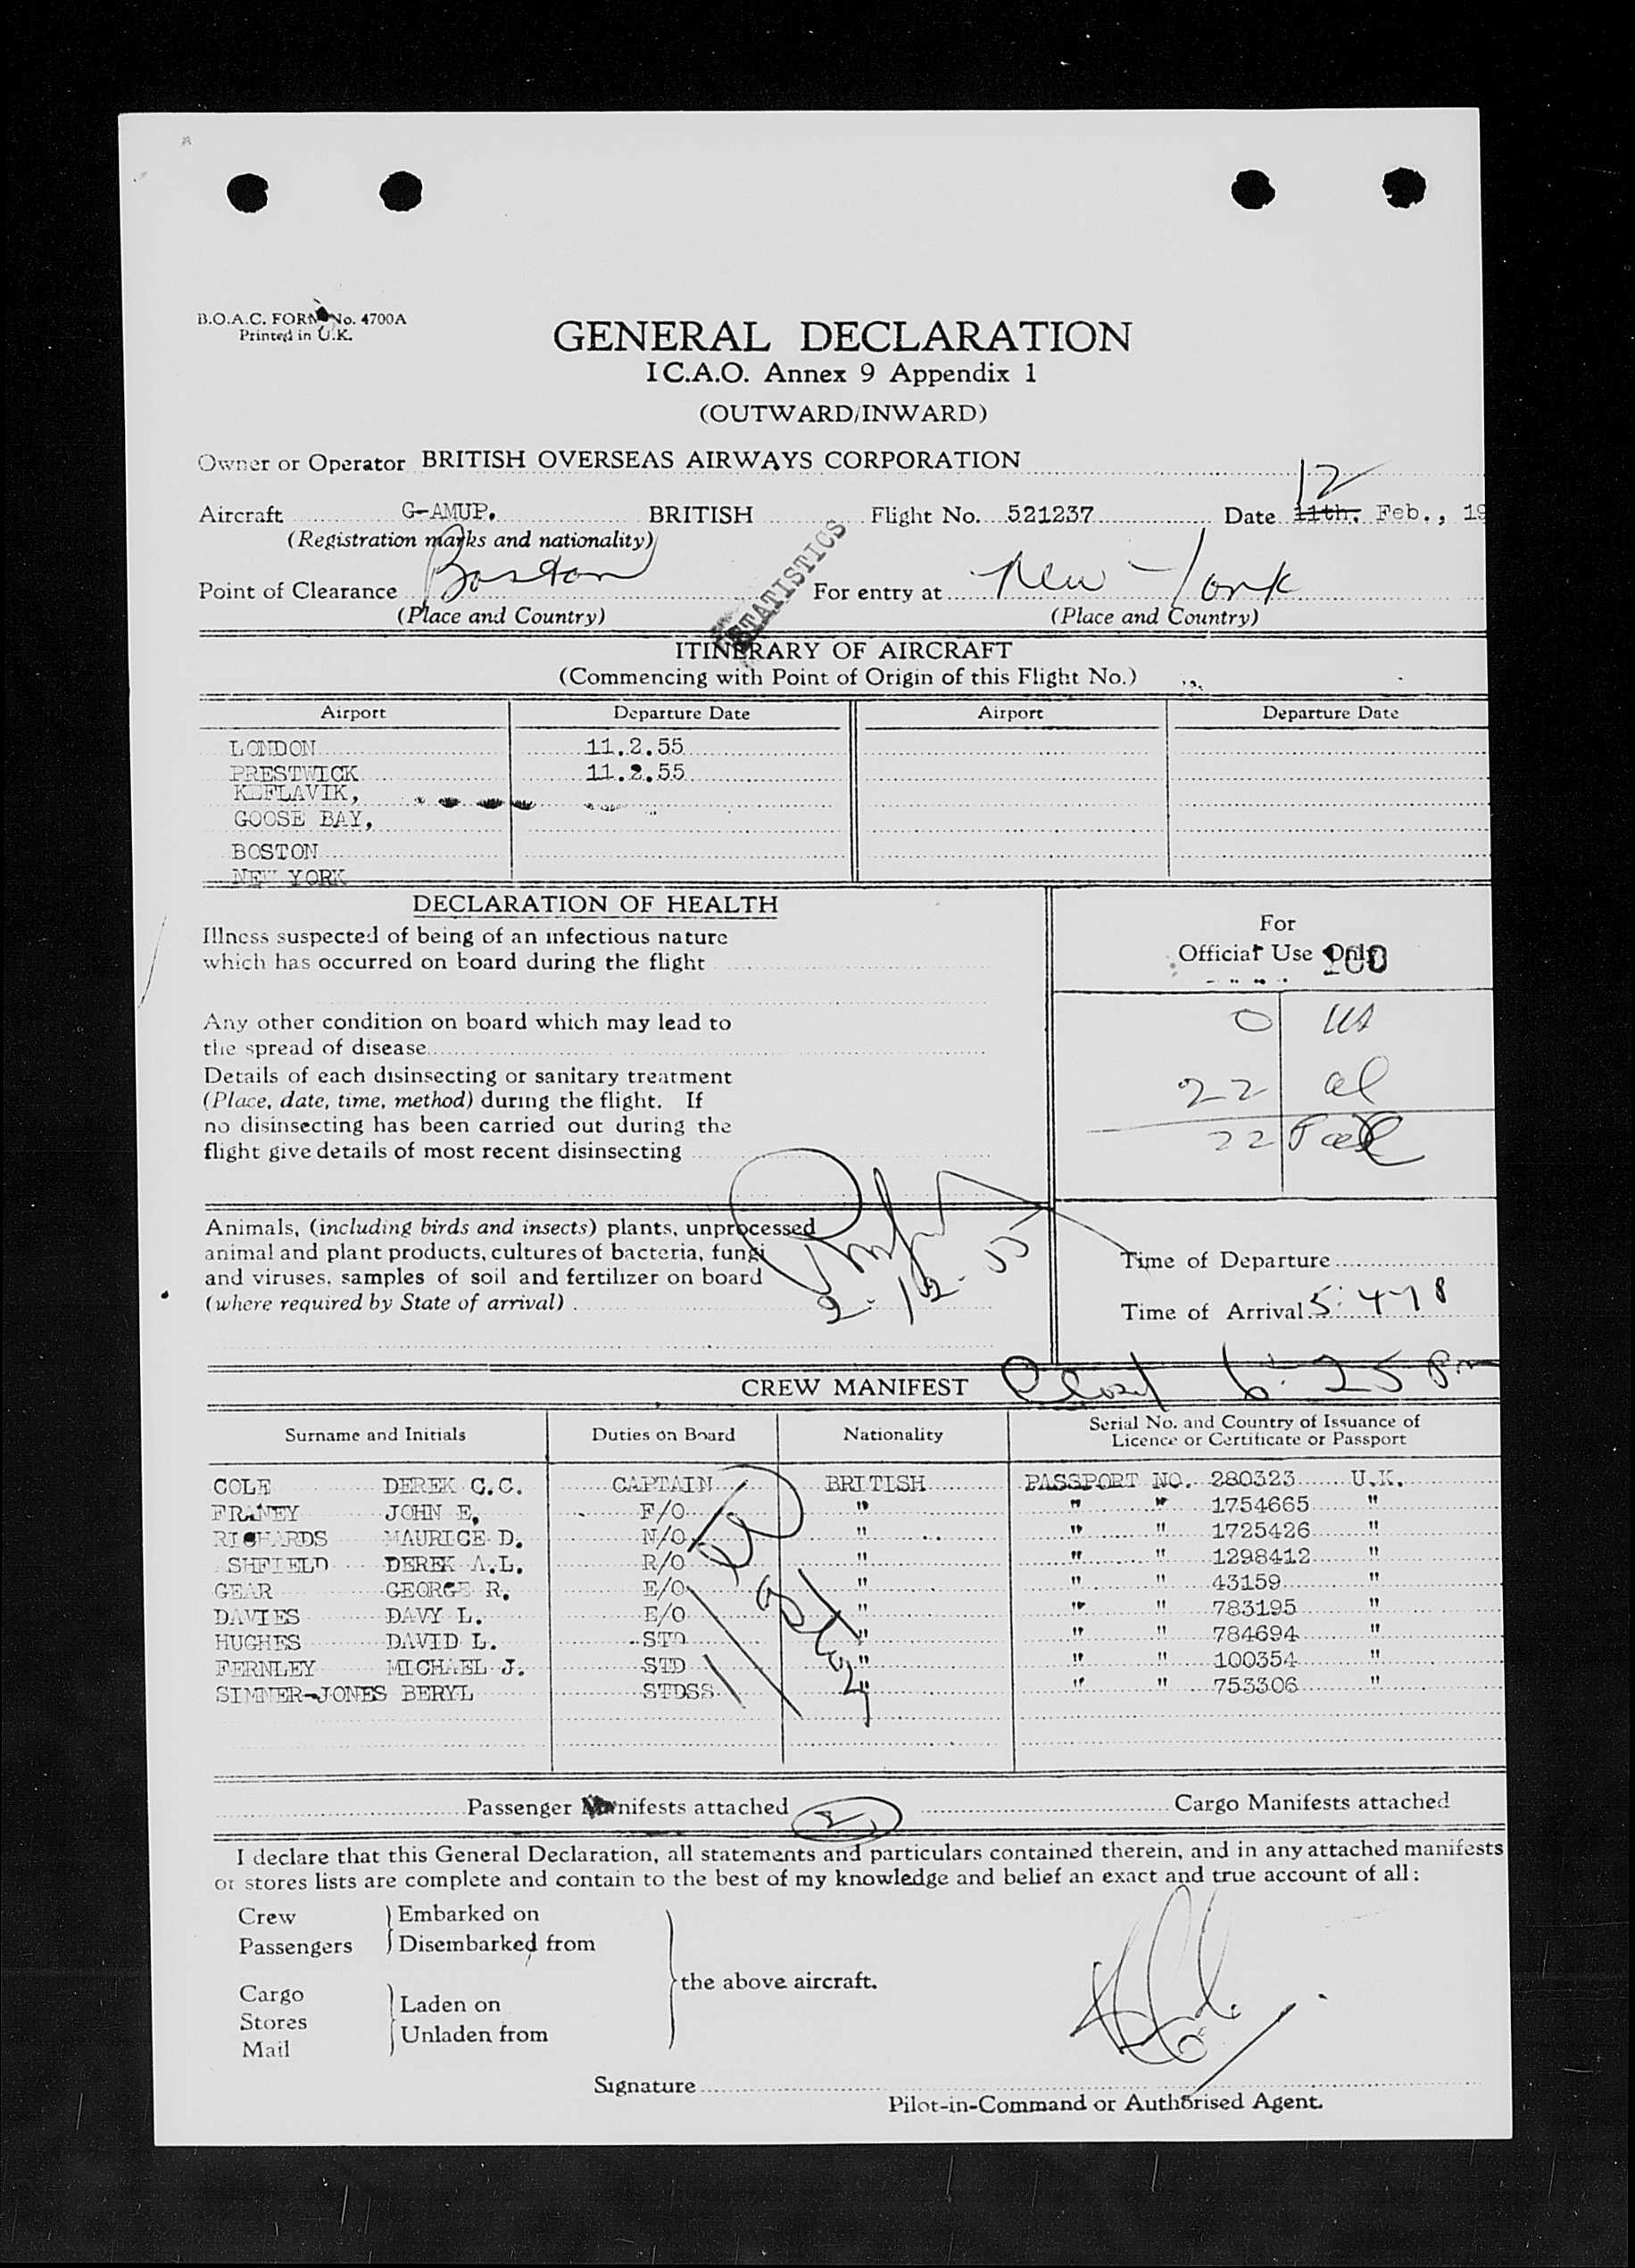 B.O.A.C. FORM No. 4700A
Printed in U.K.
GENERAL DECLARATION
I C.A.O. Annex 9 Appendix 1
(OUTWARD/INWARD)
Owner or Operator BRITISH OVERSEAS AIRWAYS CORPORATION
12
Aircraft G-AMUP. BRITISH Flight No. 521237 Date 11th. Feb., 19
(Registration marks and nationality)
STATISTICS
Point of Clearance Boston For entry at New York
(Place and Country) (Place and Country)
ITINERARY OF AIRCRAFT
(Commencing with Point of Origin of this Flight No.)
Airport Departure Date Airport Departure Date
LONDON 11.2.55
PRESTWICK 11.2.55
KEFLAVIK,
GOOSE BAY,
BOSTON
NEW YORK
DECLARATION OF HEALTH
Illness suspected of being of an infectious nature
which has occurred on board during the flight
Any other condition on board which may lead to
the spread of disease
Details of each disinsecting or sanitary treatment
(Place, date, time, method) during the flight. If
no disinsecting has been carried out during the
flight give details of most recent disinsecting
For
Official Use Only
0 US
22 al
22
Animals, (including birds and insects) plants, unprocessed
animal and plant products, cultures of bacteria, fungi
and viruses, samples of soil and fertilizer on board
(where required by State of arrival)
2-12-55
Time of Departure
Time of Arrival
CREW MANIFEST
6:25 Pm
Surname and Initials Duties on Board Nationality Serial No. and Country of Issuance of
Licence or Certificate or Passport
COLE DEREK C.C. CAPTAIN BRITISH PASSPORT NO. 280323 U.K.
FRANEY JOHN E. F/O " " " 1754665 "
RICHARDS MAURICE D. N/O " " " 1725426 "
SHFIELD DEREK A.L. R/O " " " 1298412 "
GEAR GEORGE R. E/O " " " 43159 "
DAVIES DAVY L. E/O " " " 783195 "
HUGHES DAVID L. STD " " " 784694 "
FERNLEY MICHAEL J. STD " " " 100354 "
SIMNER-JONES BERYL STDSS " " " 753306 "
Passenger Manifests attached Cargo Manifests attached
I declare that this General Declaration, all statements and particulars contained therein, and in any attached manifests
or stores lists are complete and contain to the best of my knowledge and belief an exact and true account of all:
Crew Embarked on
Passengers Disembarked from
the above aircraft.
Cargo
Stores Laden on
Mail Unladen from
Signature
Pilot-in-Command or Authorised Agent.